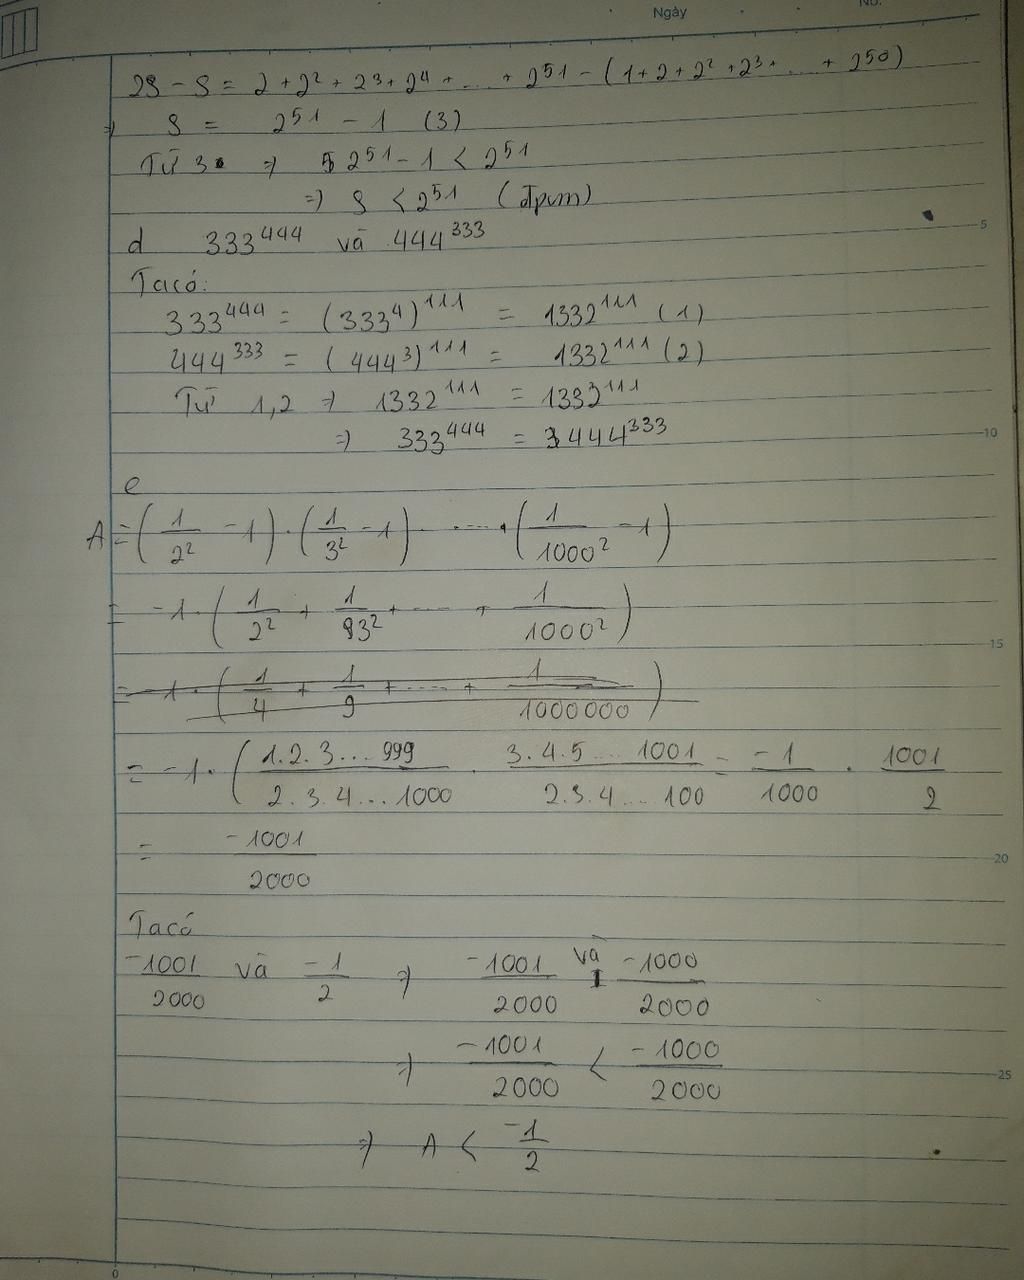 Ngày
No.
2S - S = 2 + 2² + 2³ + 2⁴ + ... + 2⁵¹ - (1 + 2 + 2² + 2³ + ... + 250)
⇒ S = 2⁵¹ - 1 (3)
Từ 3 ⇒ 2⁵¹ - 1 < 2⁵¹
⇒ S < 2⁵¹ (đpcm)
d 333⁴⁴⁴ và 444³³³
5
Ta có:
333⁴⁴⁴ = (333⁴)¹¹¹ = 1332¹¹¹ (1)
444³³³ = (444³)¹¹¹ = 1332¹¹¹ (2)
Từ 1,2 ⇒ 1332¹¹¹ = 1332¹¹¹
⇒ 333⁴⁴⁴ = 444³³³
10
e
A = (1/2² - 1) . (1/3² - 1) . .... . (1/1000² - 1)
= -1 . (1/2² + 1/3² + .... + 1/1000²)
15
= -1 . (1/4 + 1/9 + .... + 1/1000000)
= -1 . (1.2.3...999 / 2.3.4...1000 . 3.4.5...1001 / 2.3.4...100 = -1/1000 . 1001/2
= -1001/2000
20
Ta có
-1001/2000 và -1/2 ⇒ -1001/2000 và -1000/2000
⇒ -1001/2000 < -1000/2000
25
⇒ A < -1/2
0